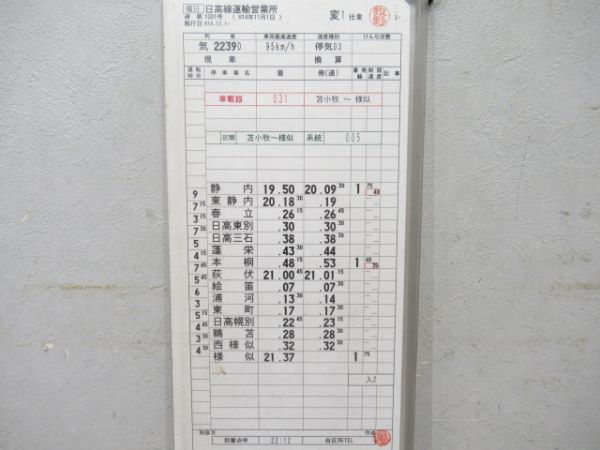 曜日 日高線運輸営業所 変1 仕業 牧野 2-
達 第1001号 ( H14年11月1日 )
施行日 H14.12.1~
列車 車両最高速度 速度種別 けん引定数
気 2239D 95km/h 停気D3
現車 換算
運転時分 停車場名 着 発(通) 着線 発線 制限速度 記事
車載器 031 苫小牧 ~ 様似
区間 苫小牧~様似 系統 005
静内 19.50 20.09 30 1 75 40
9
東静内 20.18 30 .19
7 15
春立 .26 15 .26 45
3 45
日高東別 .30 30 .30 30
7 30
日高三石 .38 30 .38 30
5
蓬栄 .43 30 .44
4 15
本桐 .48 15 .53 1 40 35
7 45
荻伏 21.00 45 21.01 15
5 45
絵笛 .07 .07 30
6
浦河 .13 30 .14
3
東町 .17 .17 30
5 15
日高幌別 .22 45 .23 15
4 45
鵜苫 .28 .28 30
3 30
西様似 .32 .32 30
4 30
様似 21.37 1 75
入2
到着点呼 22:12 自区所TEL
作成